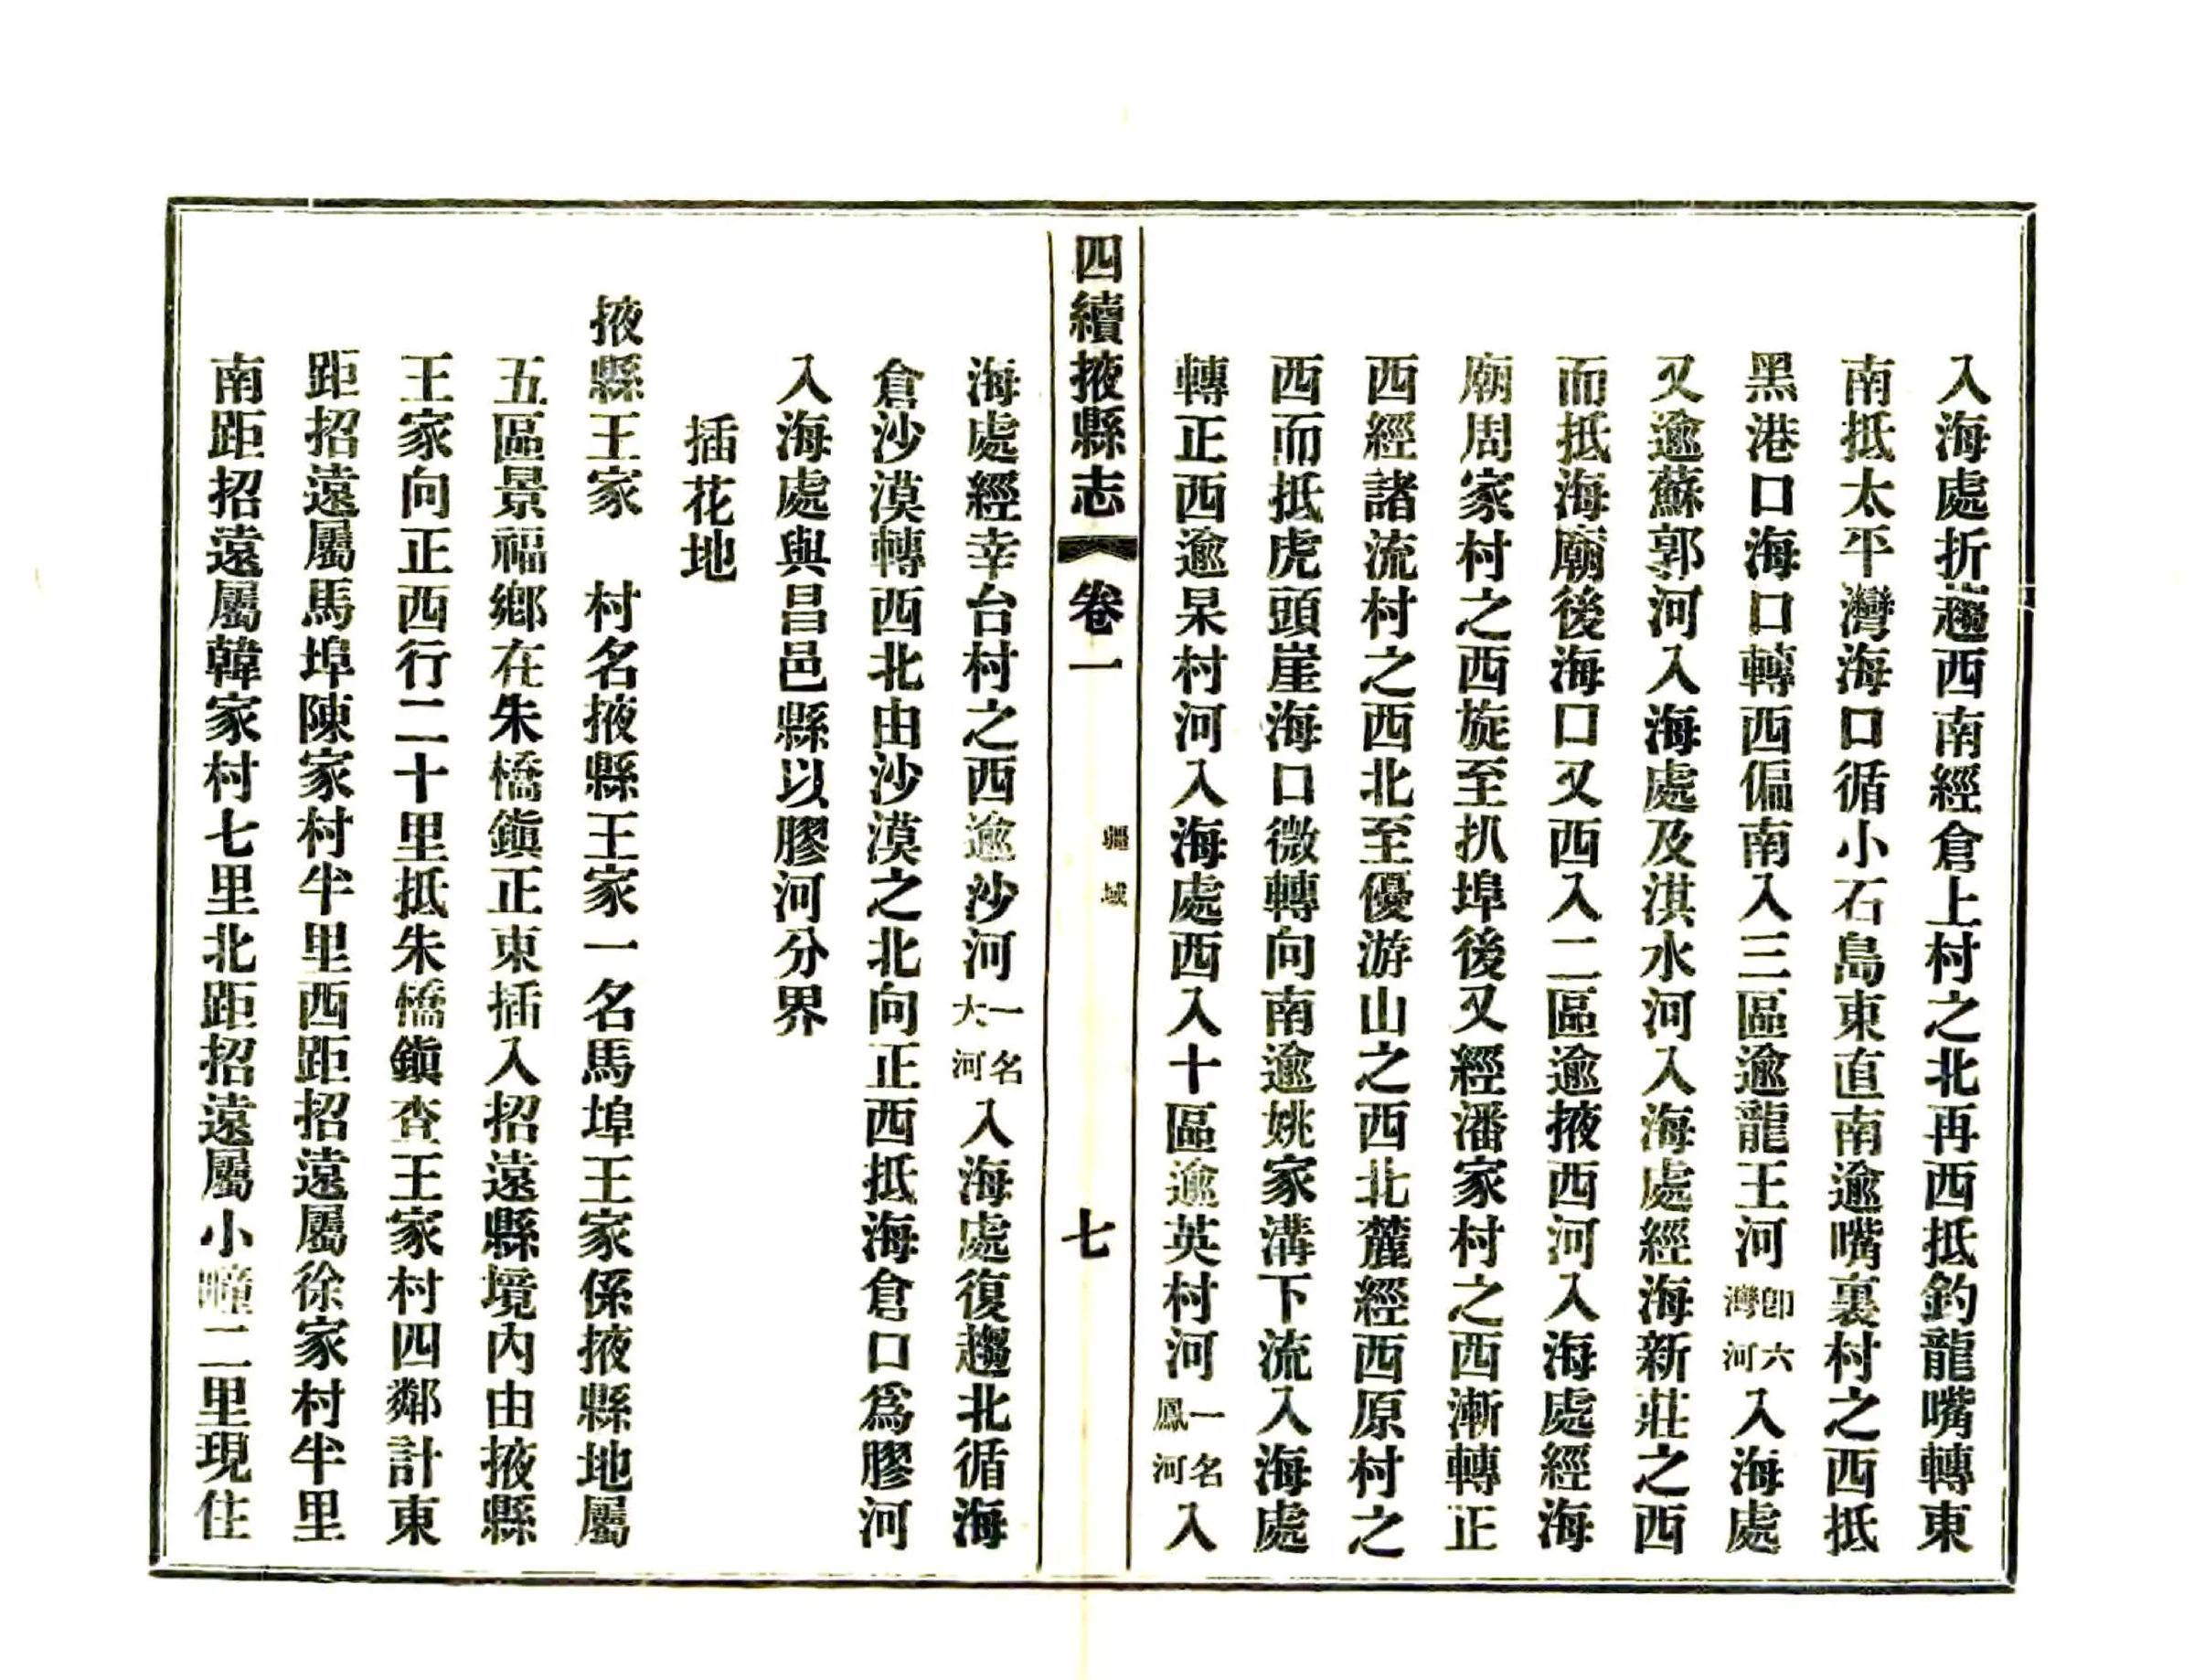 入海處折趨西南經倉上村之北再西抵釣龍嘴轉東
南抵太平灣海口循小石島東直南逾嘴裏村之西抵
黑港口海口轉西偏南入三區逾龍王河卽六灣河入海處
又逾蘇郭河入海處及淇水河入海處經海新莊之西
而抵海廟後海口又西入二區逾掖西河入海處經海
廟周家村之西旋至扒埠後又經潘家村之西漸轉正
西經諸流村之西北至優游山之西北麓經西原村之
西而抵虎頭崖海口微轉向南逾姚家溝下流入海處
轉正西逾杲村河入海處西入十區逾英村河一名鳳河入
四續掖縣志 卷一 疆域 七
海處經幸台村之西逾沙河一名大河入海處復趨北循海
倉沙漠轉西北由沙漠之北向正西抵海倉口爲膠河
入海處與昌邑縣以膠河分界
插花地
掖縣王家 村名掖縣王家一名馬埠王家係掖縣地屬
五區景福鄉在朱橋鎭正東插入招遠縣境內由掖縣
王家向正西行二十里抵朱橋鎭查王家村四鄰計東
距招遠屬馬埠陳家村半里西距招遠屬徐家村半里
南距招遠屬韓家村七里北距招遠屬小疃二里現住